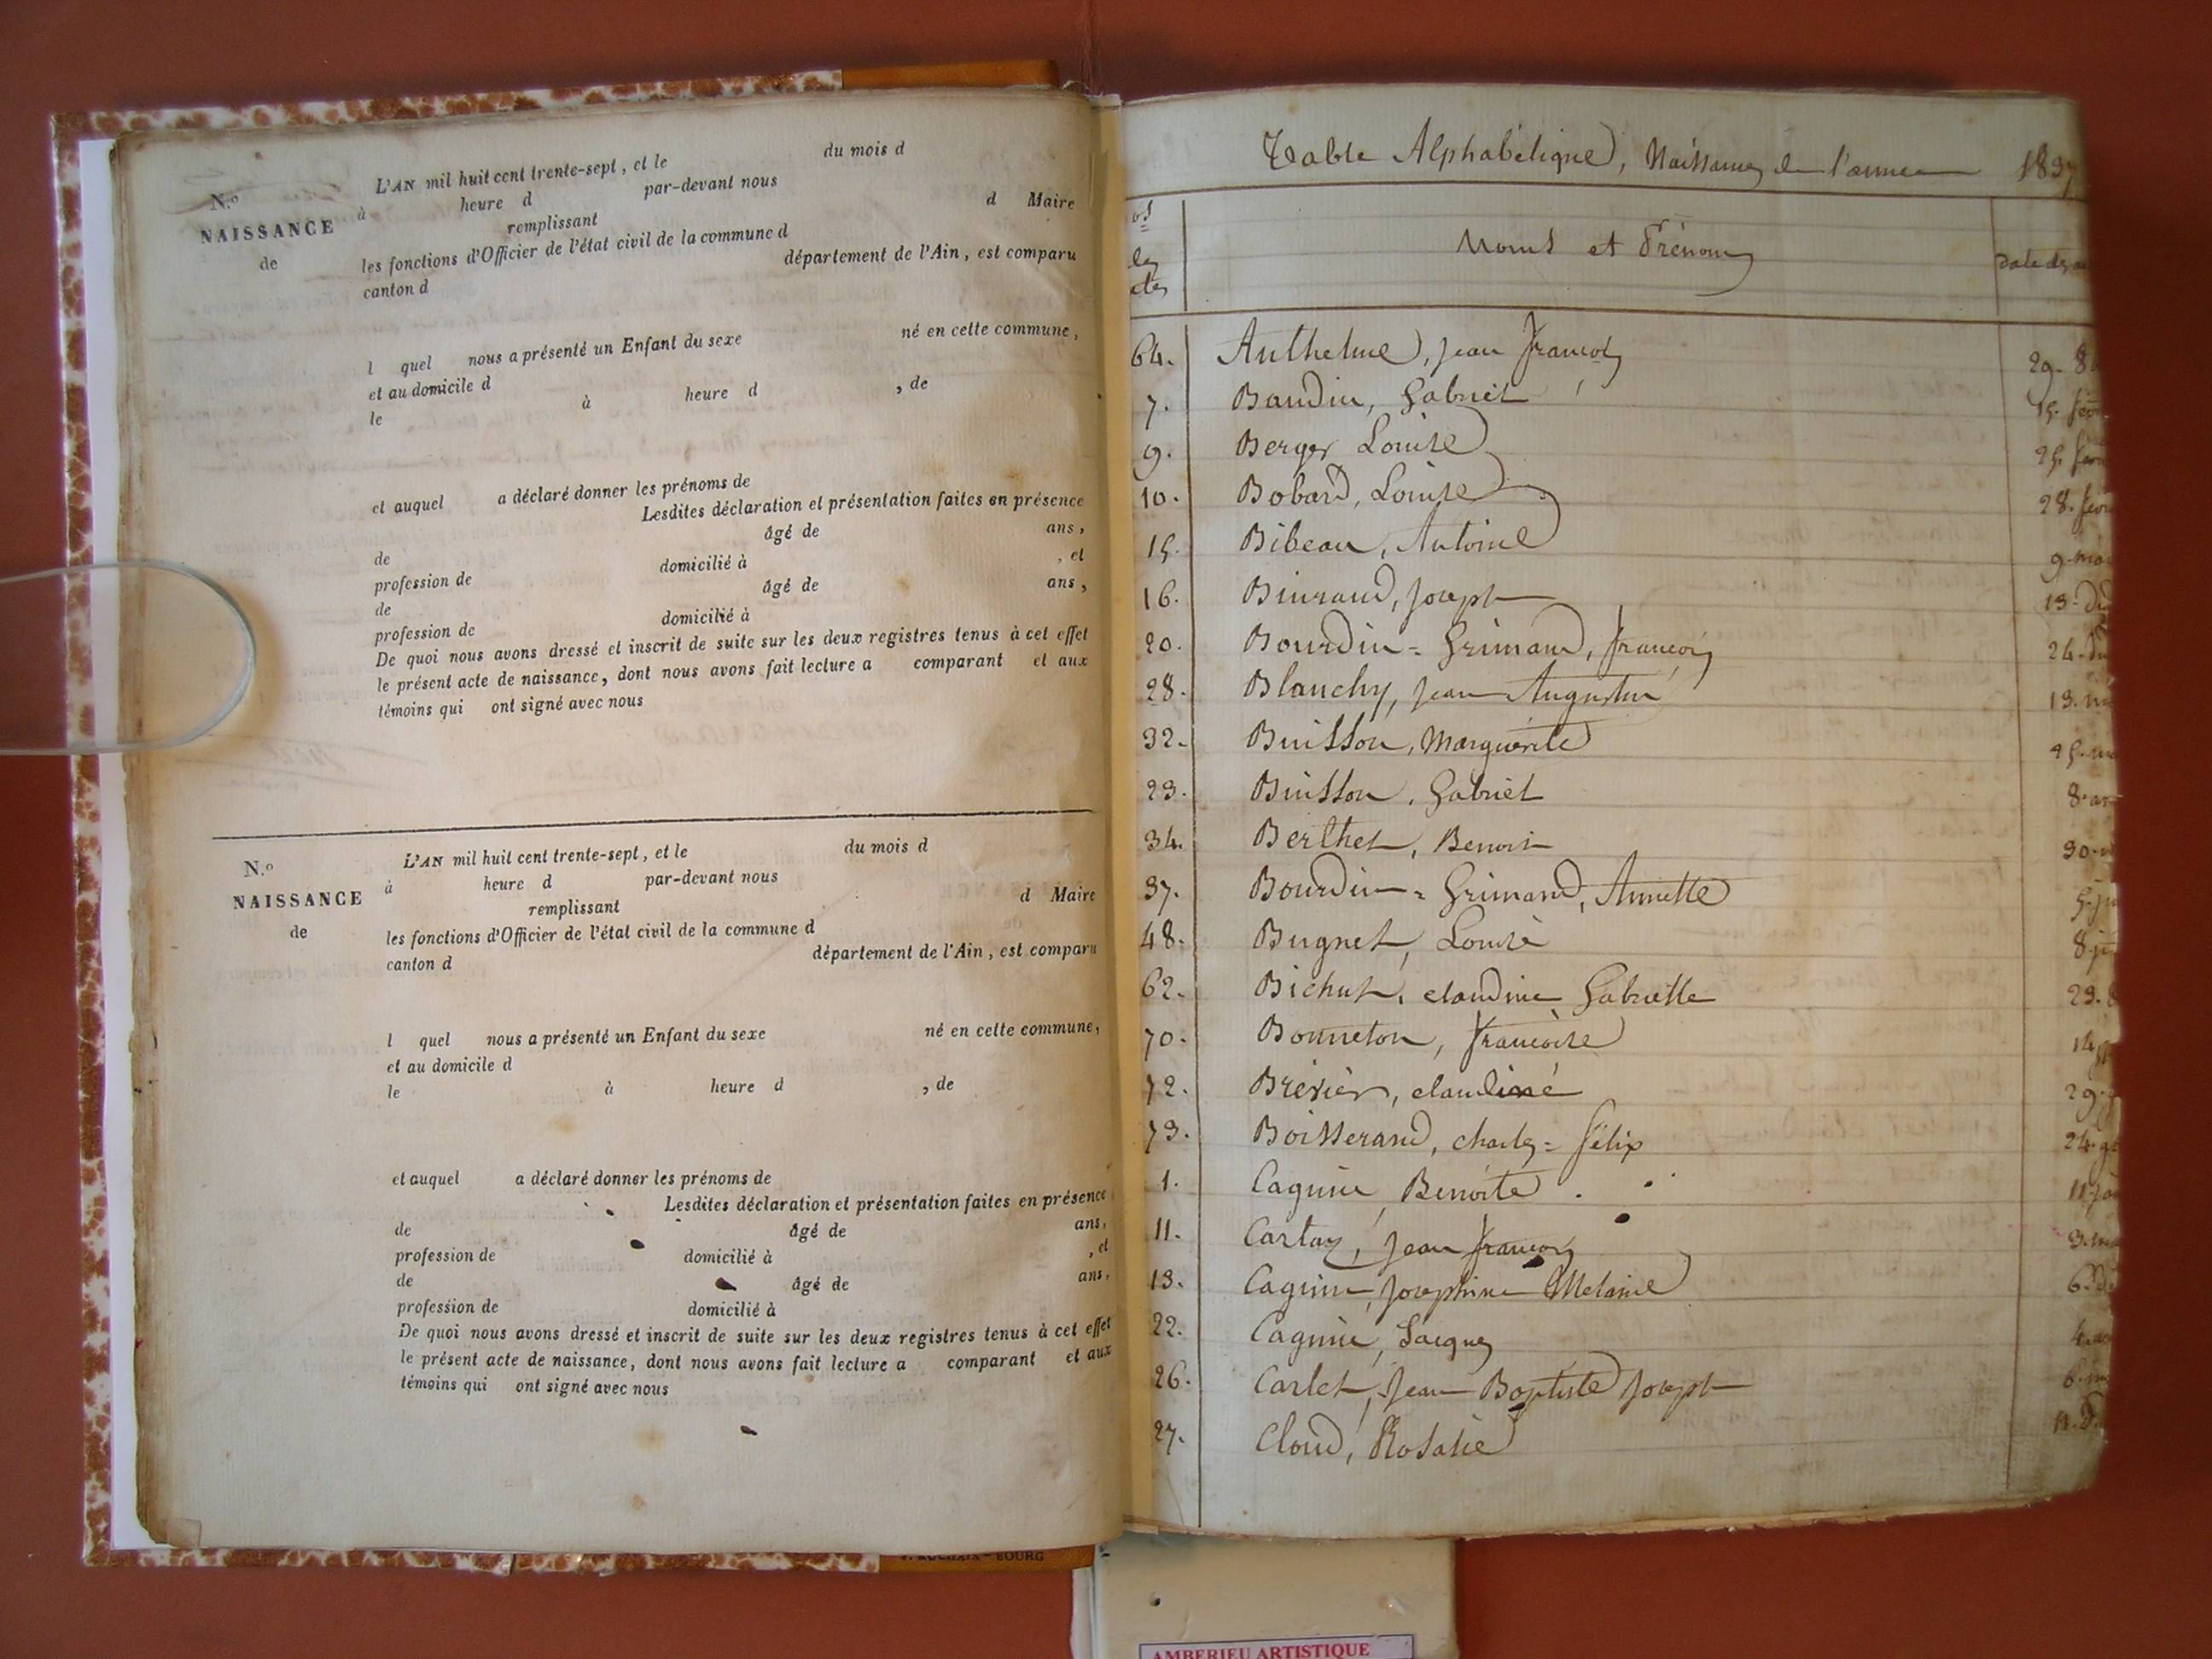 N.º
NAISSANCE
de
L'AN mil huit cent trente-sept, et le du mois d
à heure d par-devant nous
remplissant d Maire
les fonctions d'Officier de l'état civil de la commune d
canton d département de l'Ain, est comparu
l quel nous a présenté un Enfant du sexe né en cette commune,
et au domicile d
le à heure d , de
et auquel a déclaré donner les prénoms de
Lesdites déclaration et présentation faites en présence
de âgé de ans,
profession de domicilié à , et
de âgé de ans,
profession de domicilié à
De quoi nous avons dressé et inscrit de suite sur les deux registres tenus à cet effet
le présent acte de naissance, dont nous avons fait lecture a comparant et aux
témoins qui ont signé avec nous
N.º
NAISSANCE
de
L'AN mil huit cent trente-sept, et le du mois d
à heure d par-devant nous
remplissant d Maire
les fonctions d'Officier de l'état civil de la commune d
canton d département de l'Ain, est comparu
l quel nous a présenté un Enfant du sexe né en cette commune,
et au domicile d
le à heure d , de
et auquel a déclaré donner les prénoms de
Lesdites déclaration et présentation faites en présence
de âgé de ans,
profession de domicilié à , et
de âgé de ans,
profession de domicilié à
De quoi nous avons dressé et inscrit de suite sur les deux registres tenus à cet effet
le présent acte de naissance, dont nous avons fait lecture a comparant et aux
témoins qui ont signé avec nous
BOURG
Table Alphabétique, Naissances de l'année 1837
Noms et Prénoms
Date des
64. Anthelme, jean françois 29.
7. Baudin, Gabriel 15.
9. Berger Louise 25.
10. Bobard, Louise 28.
15. Bibeau, Antoine 9.
16. Binraud, joseph 13.
20. Bourdin = Grimaud, françois 24.
28. Blanchy, jean Augustin 13.
32. Buisson, Marguerite 25.
23. Buisson, Gabriel 8.
34. Berthet, Benoit 30.
37. Bourdin = Grimand, Annette 5.
48. Bugnet, Louise 8.
62. Bichut, claudine Gabrielle 23.
70. Bonneton, françoise 14
72. Brévier, claudine 29.
73. Boisserand, charles = félix 24.
1. Cagnin, Benoite 11.
11. Cartaz, jean françois 3.
13. Cagnin, josephine Mélanie 6.
22. Cagnin, Jacques 4.
26. Carlet, Jean Baptiste joseph 6.
27. Cloud, Rosalie 11.
AMBERIEU ARTISTIQUE